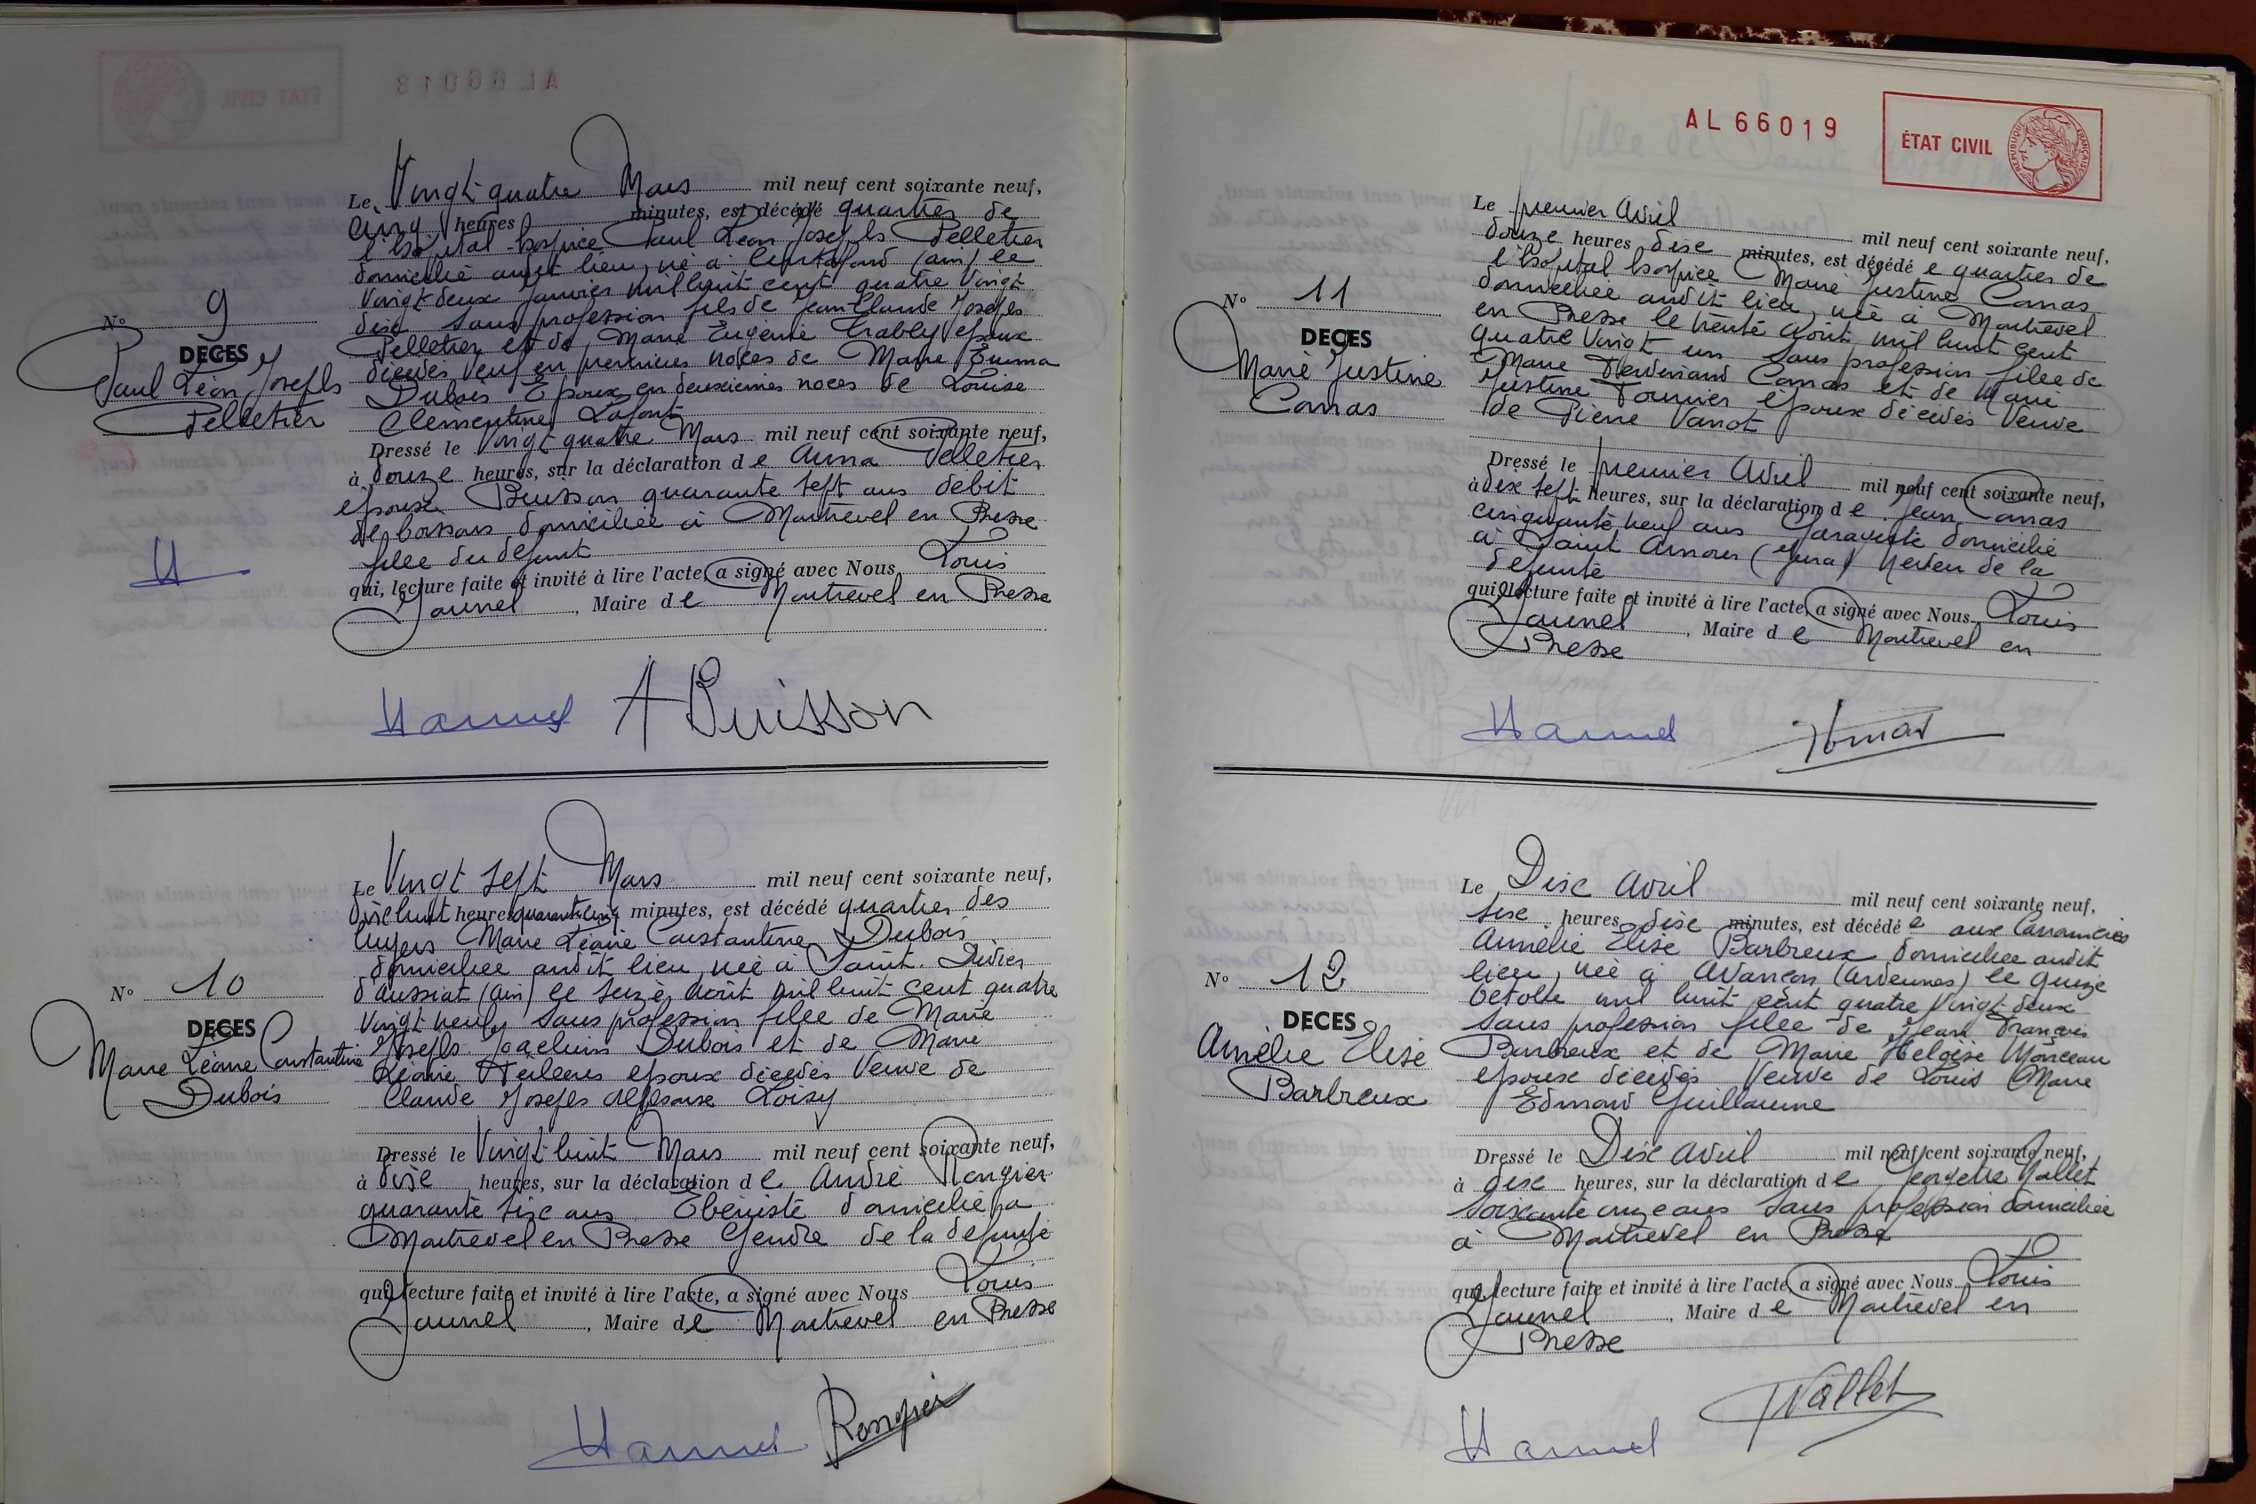 Le Vingt quatre Mars mil neuf cent soixante neuf,
Cinq heures minutes, est décédé quartier de
l'hôpital-hospice Paul Léon Joseph Pelletier
domicilié audit lieu, né à (ain) le
Vingt deux Janvier mil huit cent quatre Vingt
dix Sans profession fils de Jean Claude Joseph
Pelletier et de Marie Eugenie Chably epoux
décédés Veuf en premières noces de Marie Emma
Dubois Epoux en deuxièmes noces de Louise
Clementine Lafont
N° 9
DECES
Paul Léon Joseph
Pelletier
Dressé le Vingt quatre Mars mil neuf cent soixante neuf,
à douze heures, sur la déclaration de Anna Pelletier
épouse Buisson quarante sept ans débit
de boissons domiciliée à Montrevel en Bresse
fille du défunt
qui, lecture faite et invité à lire l'acte, a signé avec Nous Louis
Jaunel, Maire de Montrevel en Bresse
A Buisson
Le Vingt sept Mars mil neuf cent soixante neuf,
dix huit heures quarante cinq minutes, est décédé quartier des
Luyers Marie Léanie Constantine Dubois
domiciliée audit lieu, née à Saint. Didier
d'aussiat (ain) le seize août mil huit cent quatre
Vingt neuf, Sans profession fille de Marie
Joseph Joachim Dubois et de Marie
Léanie epoux décédés Veuve de
Claude Joseph Alphonse Loisy
N° 10
DECES
Marie Léanie Constantine
Dubois
Dressé le Vingt huit Mars mil neuf cent soixante neuf,
à dix heures, sur la déclaration de André Rongier
quarante six ans Ebéniste domicilié à
Montrevel en Bresse Gendre de la défunte
qui, lecture faite et invité à lire l'acte, a signé avec Nous Louis
Jaunel, Maire de Montrevel en Bresse
Rongier
AL 66019
ÉTAT CIVIL
RÉPUBLIQUE FRANÇAISE
Le premier Avril mil neuf cent soixante neuf,
douze heures dix minutes, est décédé e quartier de
l'hôpital hospice Marie Justine Comas
domiciliée audit lieu, née à Montrevel
en Bresse le trente Août mil huit cent
quatre Vingt un Sans profession fille de
Marie Ferdinand Comas et de Marie
Justine Fournier epoux décédés Veuve
de Pierre Vanot
N° 11
DECES
Marie Justine
Comas
Dressé le premier Avril mil neuf cent soixante neuf,
à dix sept heures, sur la déclaration de Jean Comas
cinquante neuf ans Garagiste domicilié
à Saint Amour (Jura) Neveu de la
défunte
qui, lecture faite et invité à lire l'acte, a signé avec Nous Louis
Jaunel, Maire de Montrevel en
Bresse
Le Dix Avril mil neuf cent soixante neuf,
six heures dix minutes, est décédé e aux Carronnières
Amélie Elise Barbreux domiciliée audit
lieu, née à Avançon (Ardennes) le quinze
Octobre mil huit cent quatre Vingt deux
Sans profession fille de Jean François
Barbreux et de Marie Héloïse Monceau
epoux décédés Veuve de Louis Marie
Edmond Guillaume
N° 12
DECES
Amélie Elise
Barbreux
Dressé le Dix Avril mil neuf cent soixante neuf,
à dix heures, sur la déclaration de Georgette Vallet
Soixante onze ans Sans profession domiciliée
à Montrevel en Bresse
qui, lecture faite et invité à lire l'acte, a signé avec Nous Louis
Jaunel, Maire de Montrevel en
Bresse
Vallet